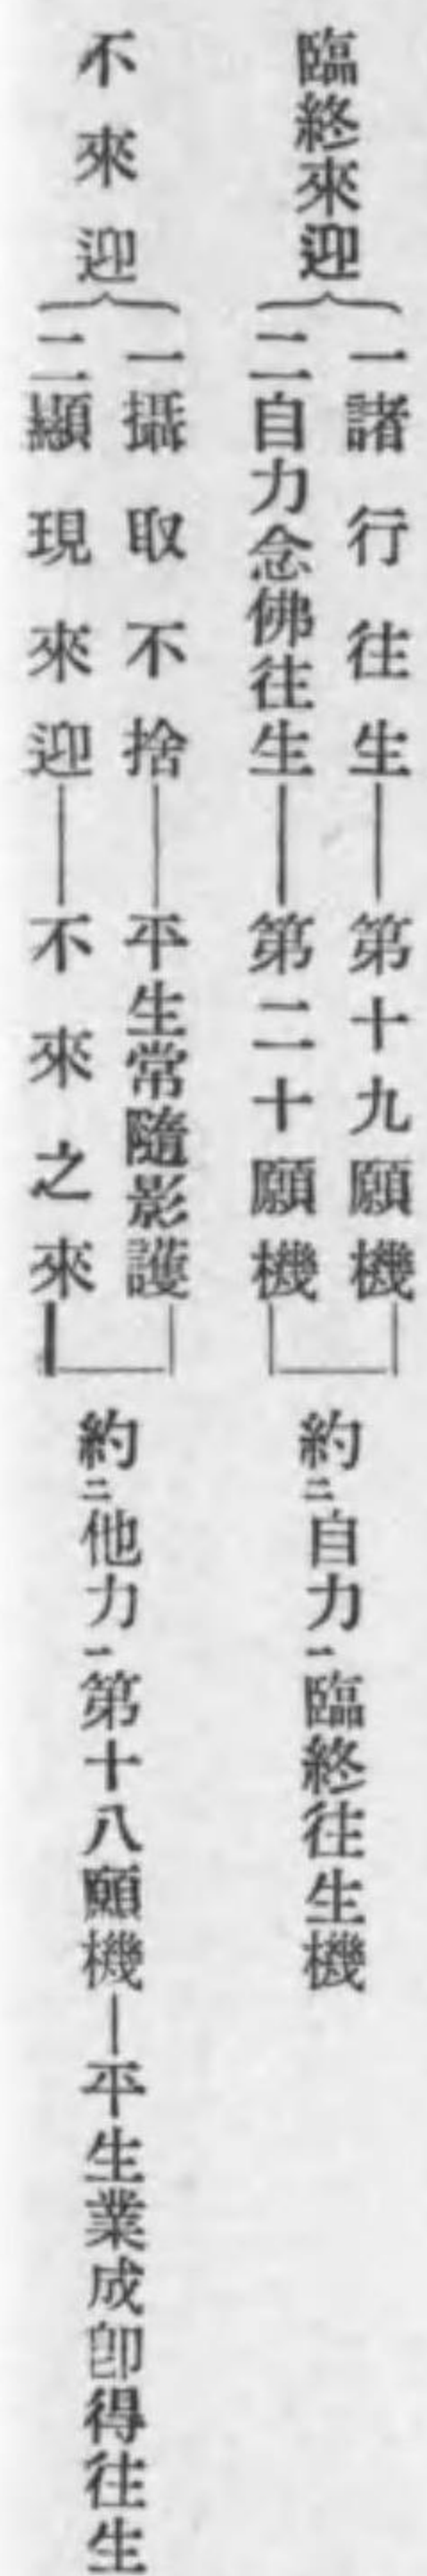 臨終來迎
一諸行往生――第十九願機
二自力念佛往生――第二十願機
約二自力一臨終往生機
不來迎
一攝取不捨――平生常隨影護
二顯現來迎――不來之來
約二他力一第十八願機―平生業成卽得往生